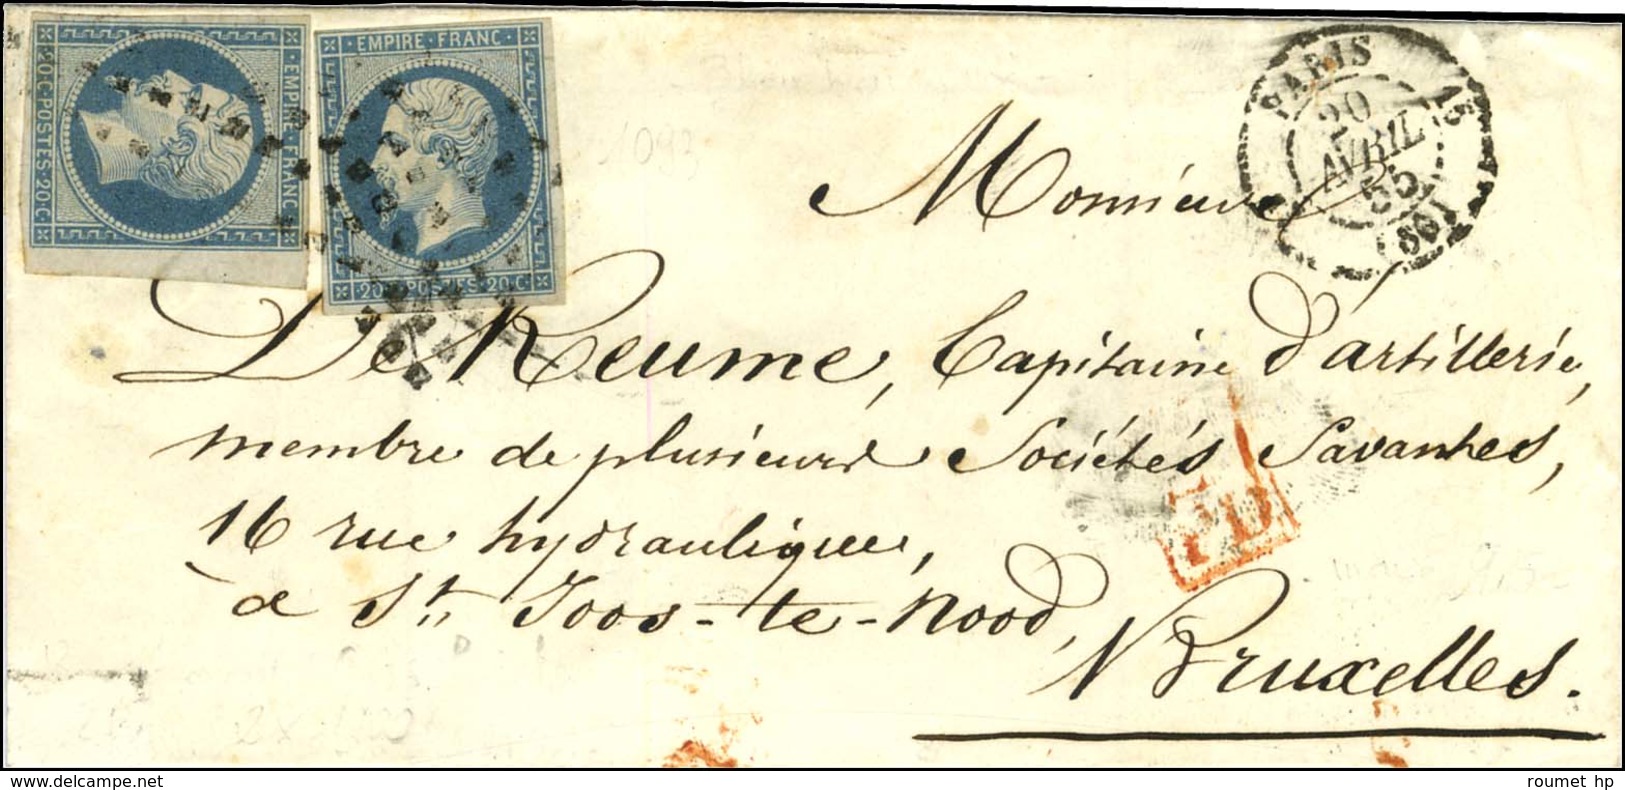 EMPIRE FRANC
20 C POSTES 20 C
EMPIRE FRANC
20 C POSTES 20 C
PARIS
20
AVRIL
55
(60)
1093
Monsieur
De Reume, Capitaine d'artillerie,
membre de plusieurs Sociétés Savantes,
16 rue hydraulique,
à St. Joos-te-Nood,
PD
Bruxelles.
delcampe.net
roumet hp